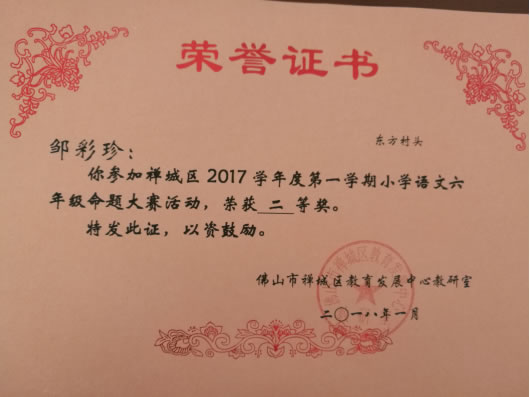 荣誉证书
东方村头
邹彩珍：
你参加禅城区2017学年度第一学期小学语文六
年级命题大赛活动，荣获二等奖。
特发此证，以资鼓励。
佛山市禅城区教育发展中心教研室
二〇一八年一月